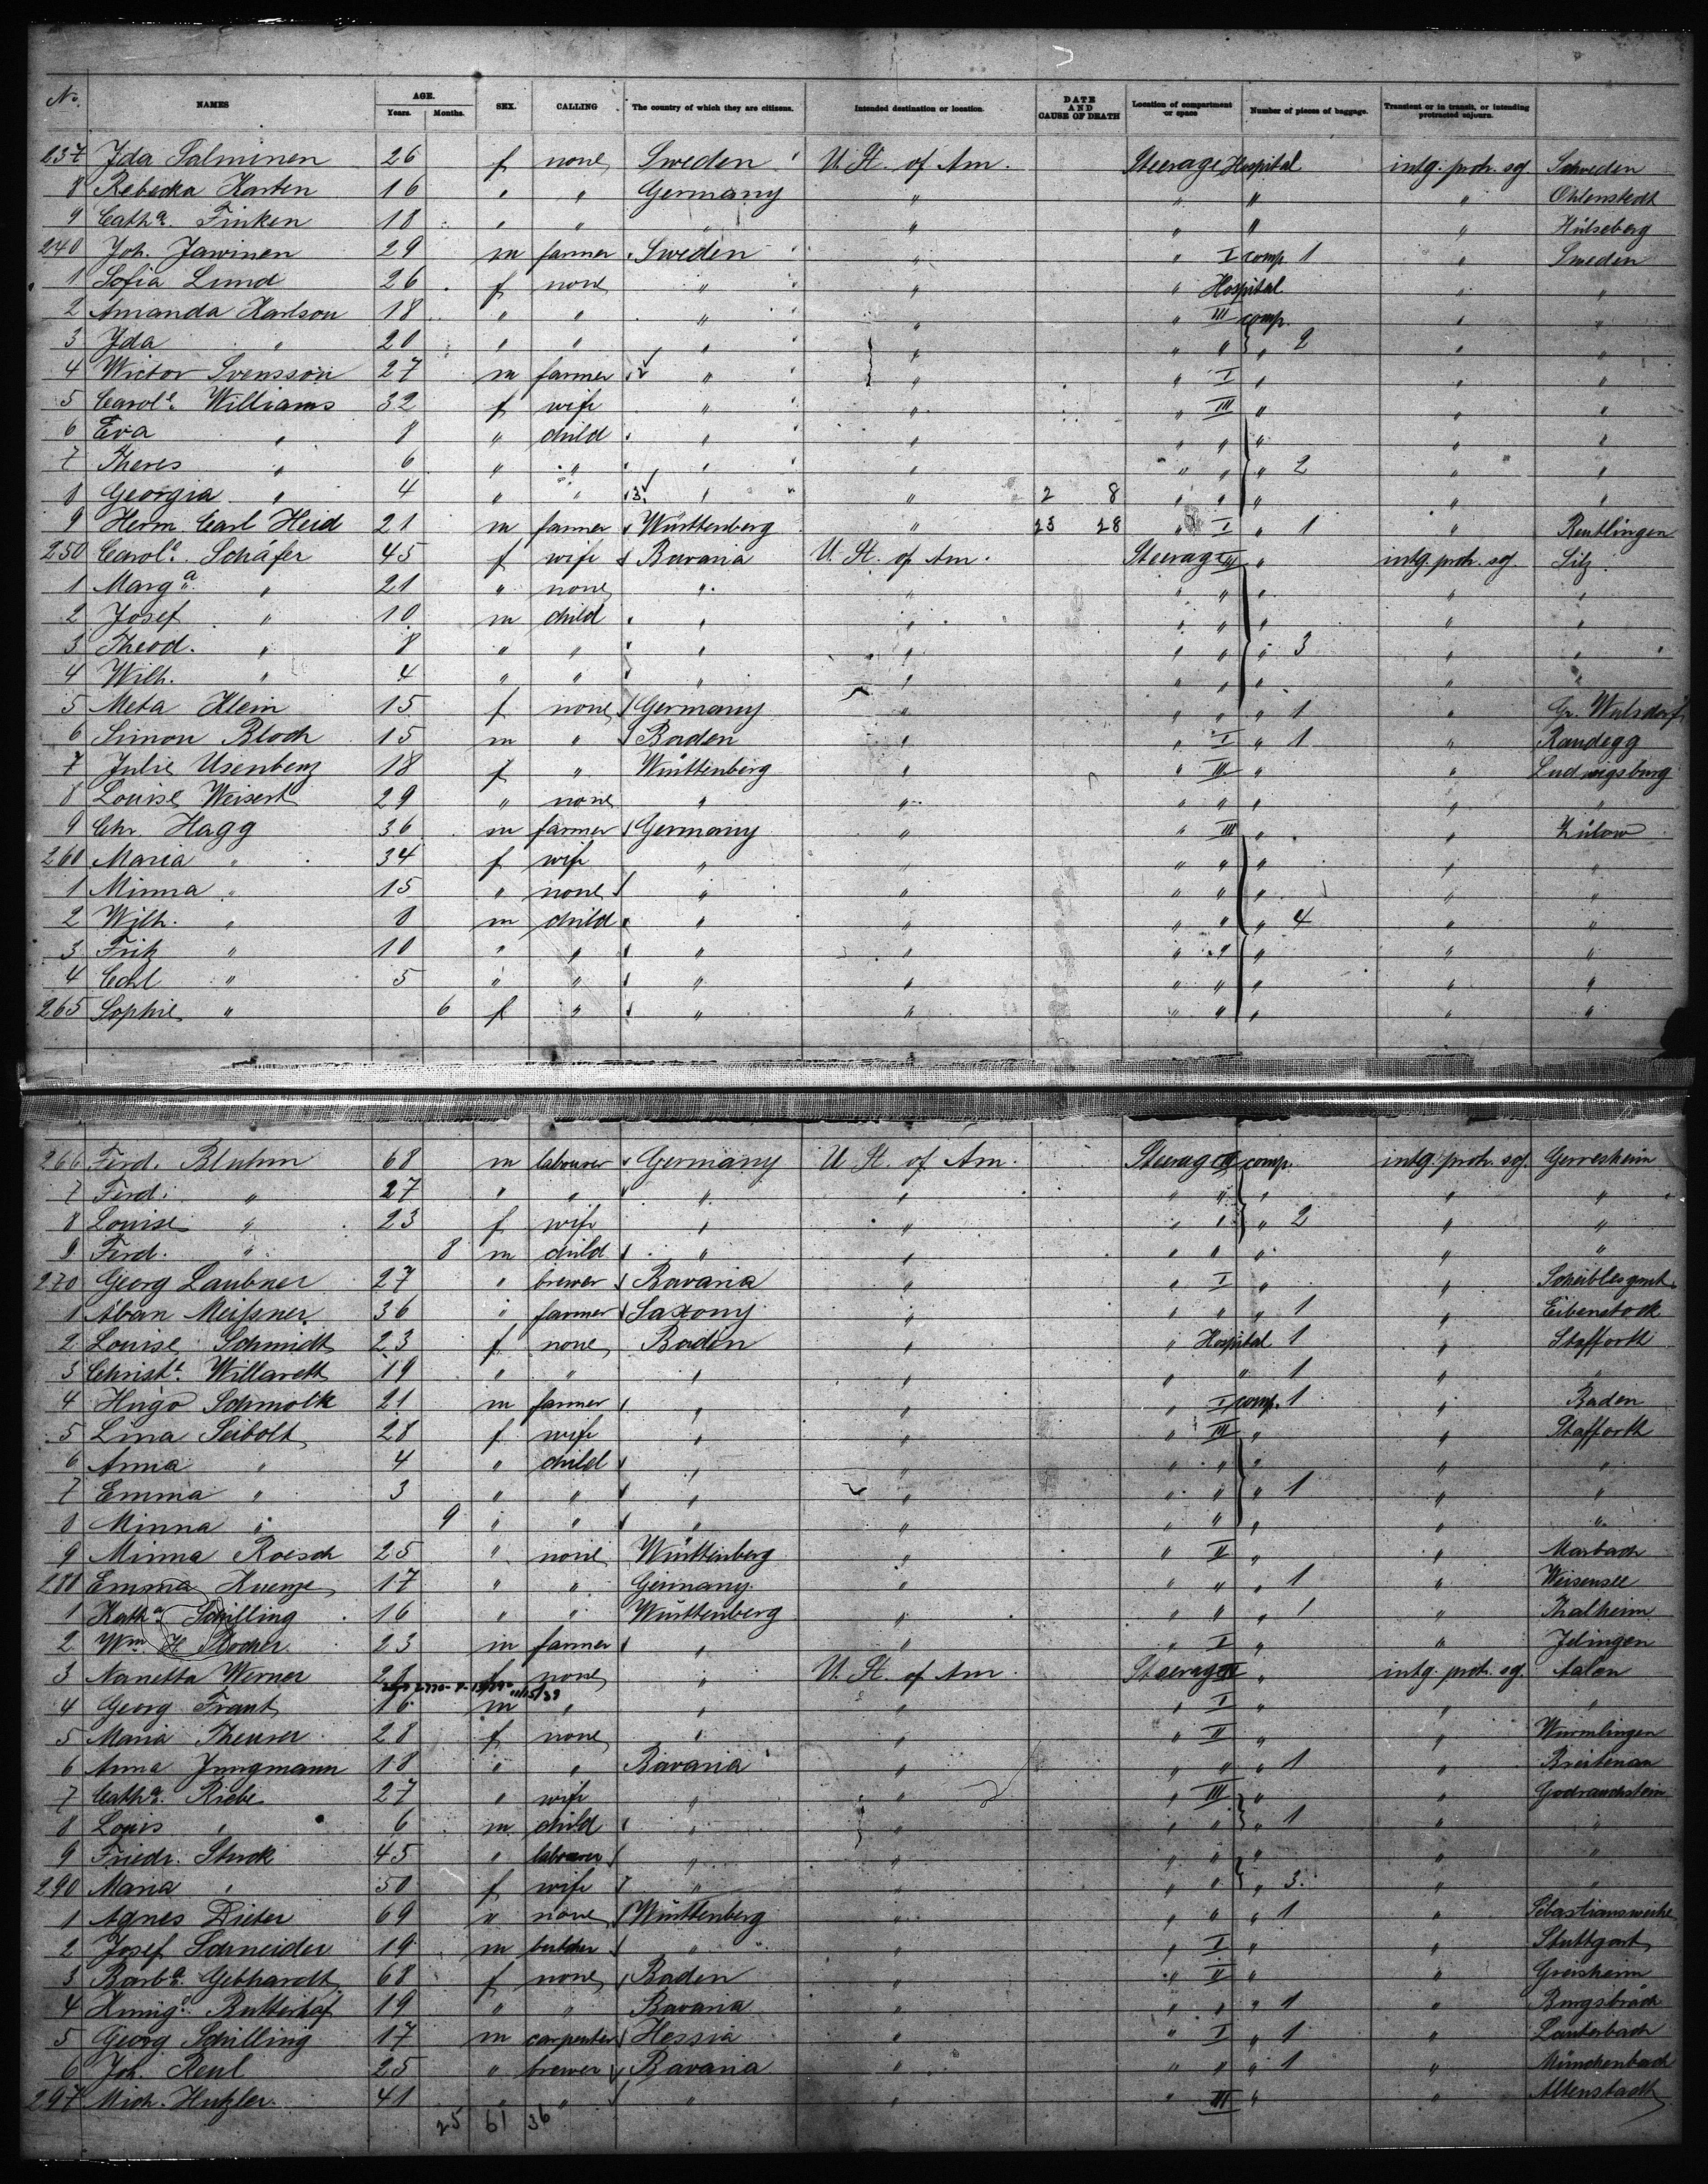 No. NAMES AGE. Years. Months. SEX. CALLING The country of which they are citizens. Intended destination or location. DATE AND CAUSE OF DEATH Location of compartment or space Number of pieces of baggage. Transient or in transit, or intending protracted sojourn.
237 Ida Talminen 26 f none Sweden U. St. of Am. Steerage Hospital intg. protr. soj. Schweden
8 Rebecka Karten 16 " " Germany " " " " Ohlenstedt
9 Catha. Finken 18 " " " " " " " Hülseberg
240 Joh. Jawinen 29 m farmer Sweden " " I comp. 1 " Sweden
1 Sofia Lund 26 f none " " " Hospital " "
2 Amanda Karlson 18 " " " " " III comp. " "
3 Ida " 20 " " " " " " " 2 " "
4 Victor Svensson 27 m farmer " " " I " " "
5 Carole. Williams 32 f wife " " " III " " "
6 Eva " 8 " child " " " " " " "
7 Theres " 6 " " " " " " " 2 " "
8 Georgia " 4 " " 3 " " 2 8 " " " " "
9 Herm. Carl Heid 21 m farmer Württenberg " 23 28 " I " 1 " Reutlingen
250 Carola. Schäfer 45 f wife Bavaria U. St. of Am. Steerage III " intg. protr. soj. Silz
1 Marga. " 21 " none " " " " " " "
2 Josef " 10 m child " " " " " " "
3 Theod. " 8 " " " " " " " 3 " "
4 Wilh. " 4 " " " " " " " " "
5 Meta Klein 15 f none Germany " " " " 1 " Gr. Wulsdorf
6 Simon Bloch 15 m " Baden " " I " 1 " Randegg
7 Julie Usenbenz 18 f " Württenberg " " II " " Ludwigsburg
8 Louise Weisert 29 " none " " " " " " "
9 Chr. Hagg 36 m farmer Germany " " III " " Zülow
260 Maria " 34 f wife " " " " " " "
1 Minna " 15 " none " " " " " " "
2 Wilh. " 8 m child " " " " " 4 " "
3 Fritz " 10 " " " " " " " " "
4 Carl " 5 " " " " " " " " "
265 Sophie " 6 f " " " " " " " "
266 Ferd. Bluhm 68 m labourer Germany U. St. of Am. Steerage III comp. intg. protr. soj. Gerresheim
7 Ferd. " 27 " " " " " " " " "
8 Louise " 23 f wife " " " " " 2 " "
9 Ferd. " 8 m child " " " " " " "
270 Georg Laubner 27 " brewer Bavaria " " I " "
1 Alban Meißner 36 " farmer Saxony " " " " 1 " Eibenstock
2 Louise Schmidt 23 f none Baden " " Hospital 1 " Stafforth
3 Christe. Willareth 19 " " " " " " 1 " "
4 Hugo Schmolk 21 m farmer " " " I comp. 1 " Baden
5 Lina Seibolt 28 f wife " " " III " " Stafforth
6 Anna " 4 " child " " " " " " "
7 Emma " 3 " " " " " " " 1 " "
8 Minna " 9 " " " " " " " " "
9 Minna Roesch 25 " none Württenberg " " II " " Marbach
280 Emma Kuenze 17 " " Germany " " " " 1 " Weisensee
1 Katha. Schilling 16 " " Württenberg " " " " 1 " Thalheim
2 Wm. H. Stocker 23 m farmer " " " I " "
3 Nanetta Werner 21 f none " U. St. of Am. Steerage II " intg. protr. soj. Aalen
4 Georg Frank 16 m " " " " I " " "
5 Maria Theurer 28 f none " " " II " " Wurmlingen
6 Anna Jungmann 18 " " Bavaria " " " " 1 " Breitenau
7 Catha. Riebe 27 " wife " " " III " "
8 Louis " 6 m child " " " " " 1 " "
9 Friedr. Sturk 45 " labourer " " " " " " "
290 Maria " 50 f wife " " " " " 3 " "
1 Agnes Dieter 69 " none Württenberg " " " " 1 " Sebastiansweiler
2 Josef Schneider 19 m butcher " " " I " " Stuttgart
3 Barba. Gebhardt 68 f none Baden " " II " " Greisheim
4 Kunigd. Butterhof 19 " " Bavaria " " " " 1 " Burgebrach
5 Georg Schilling 17 m carpenter Hessia " " I " 1 " Lauterbach
6 Joh. Reul 25 " brewer Bavaria " " " " 1 " Münchenbach
297 Mich. Hutzler 41 " " " " " III " " Altenstadt
25 61 36